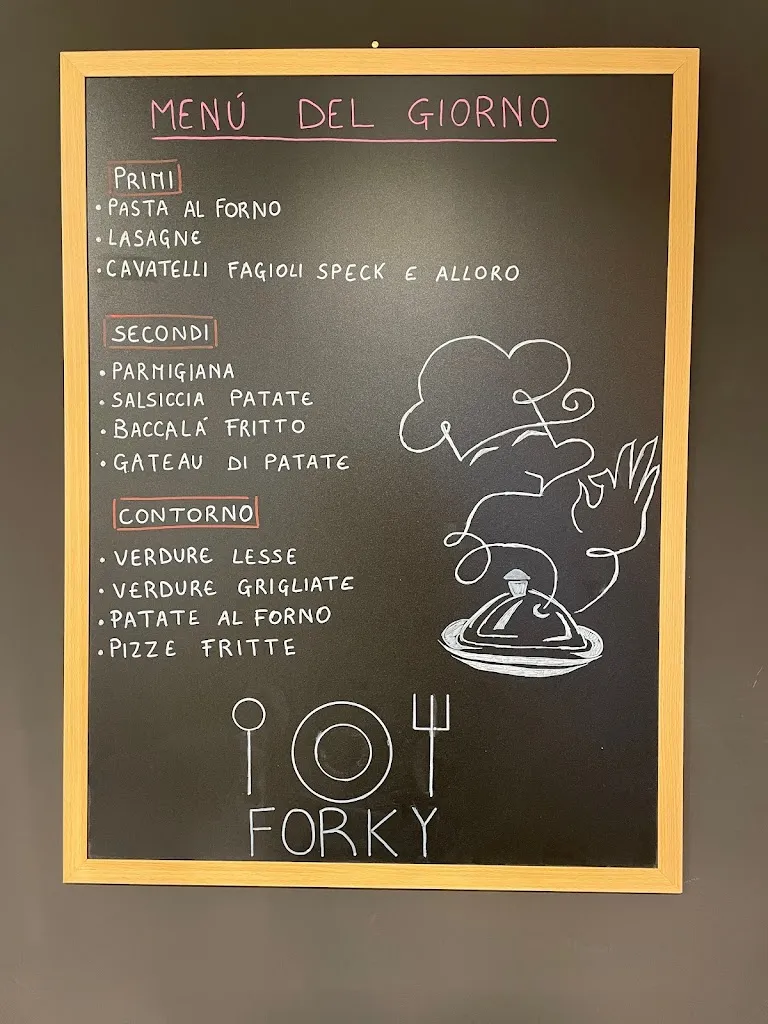 MENÚ DEL GIORNO
PRIMI
• PASTA AL FORNO
• LASAGNE
• CAVATELLI FAGIOLI SPECK E ALLORO
SECONDI
• PARMIGIANA
• SALSICCIA PATATE
• BACCALÁ FRITTO
• GATEAU DI PATATE
CONTORNO
• VERDURE LESSE
• VERDURE GRIGLIATE
• PATATE AL FORNO
• PIZZE FRITTE
FORKY